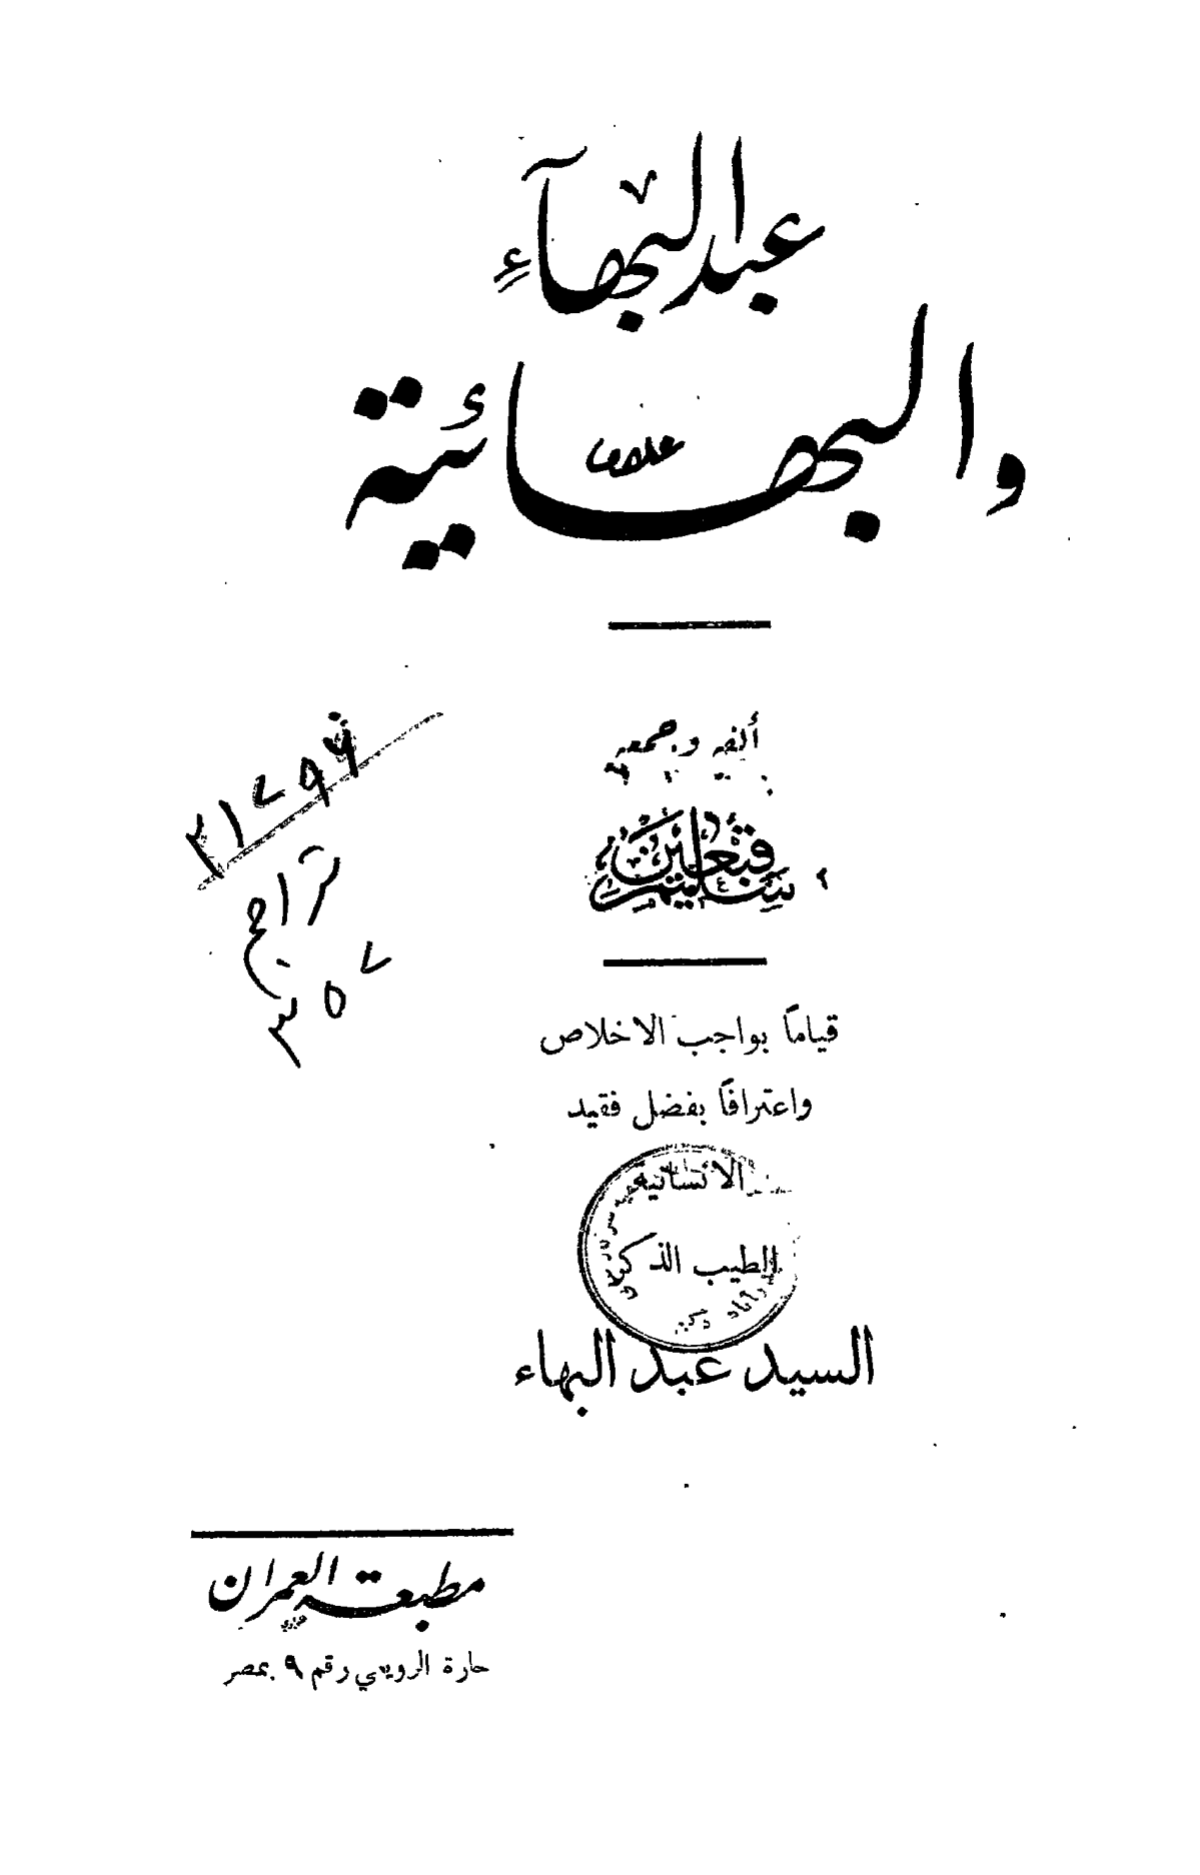 عبد البهآءِ
والبهائية
ألفه وجمعه
سليم قبعين
٢١٧٩٤
تراجم
٣٥٧
قياماً بواجب الاخلاص
واعترافاً بفضل فقيد
الانسانية
الطيب الذكر
السيد عبد البهاء
مطبعة العمران
حارة الرويعي رقم ٩ بمصر